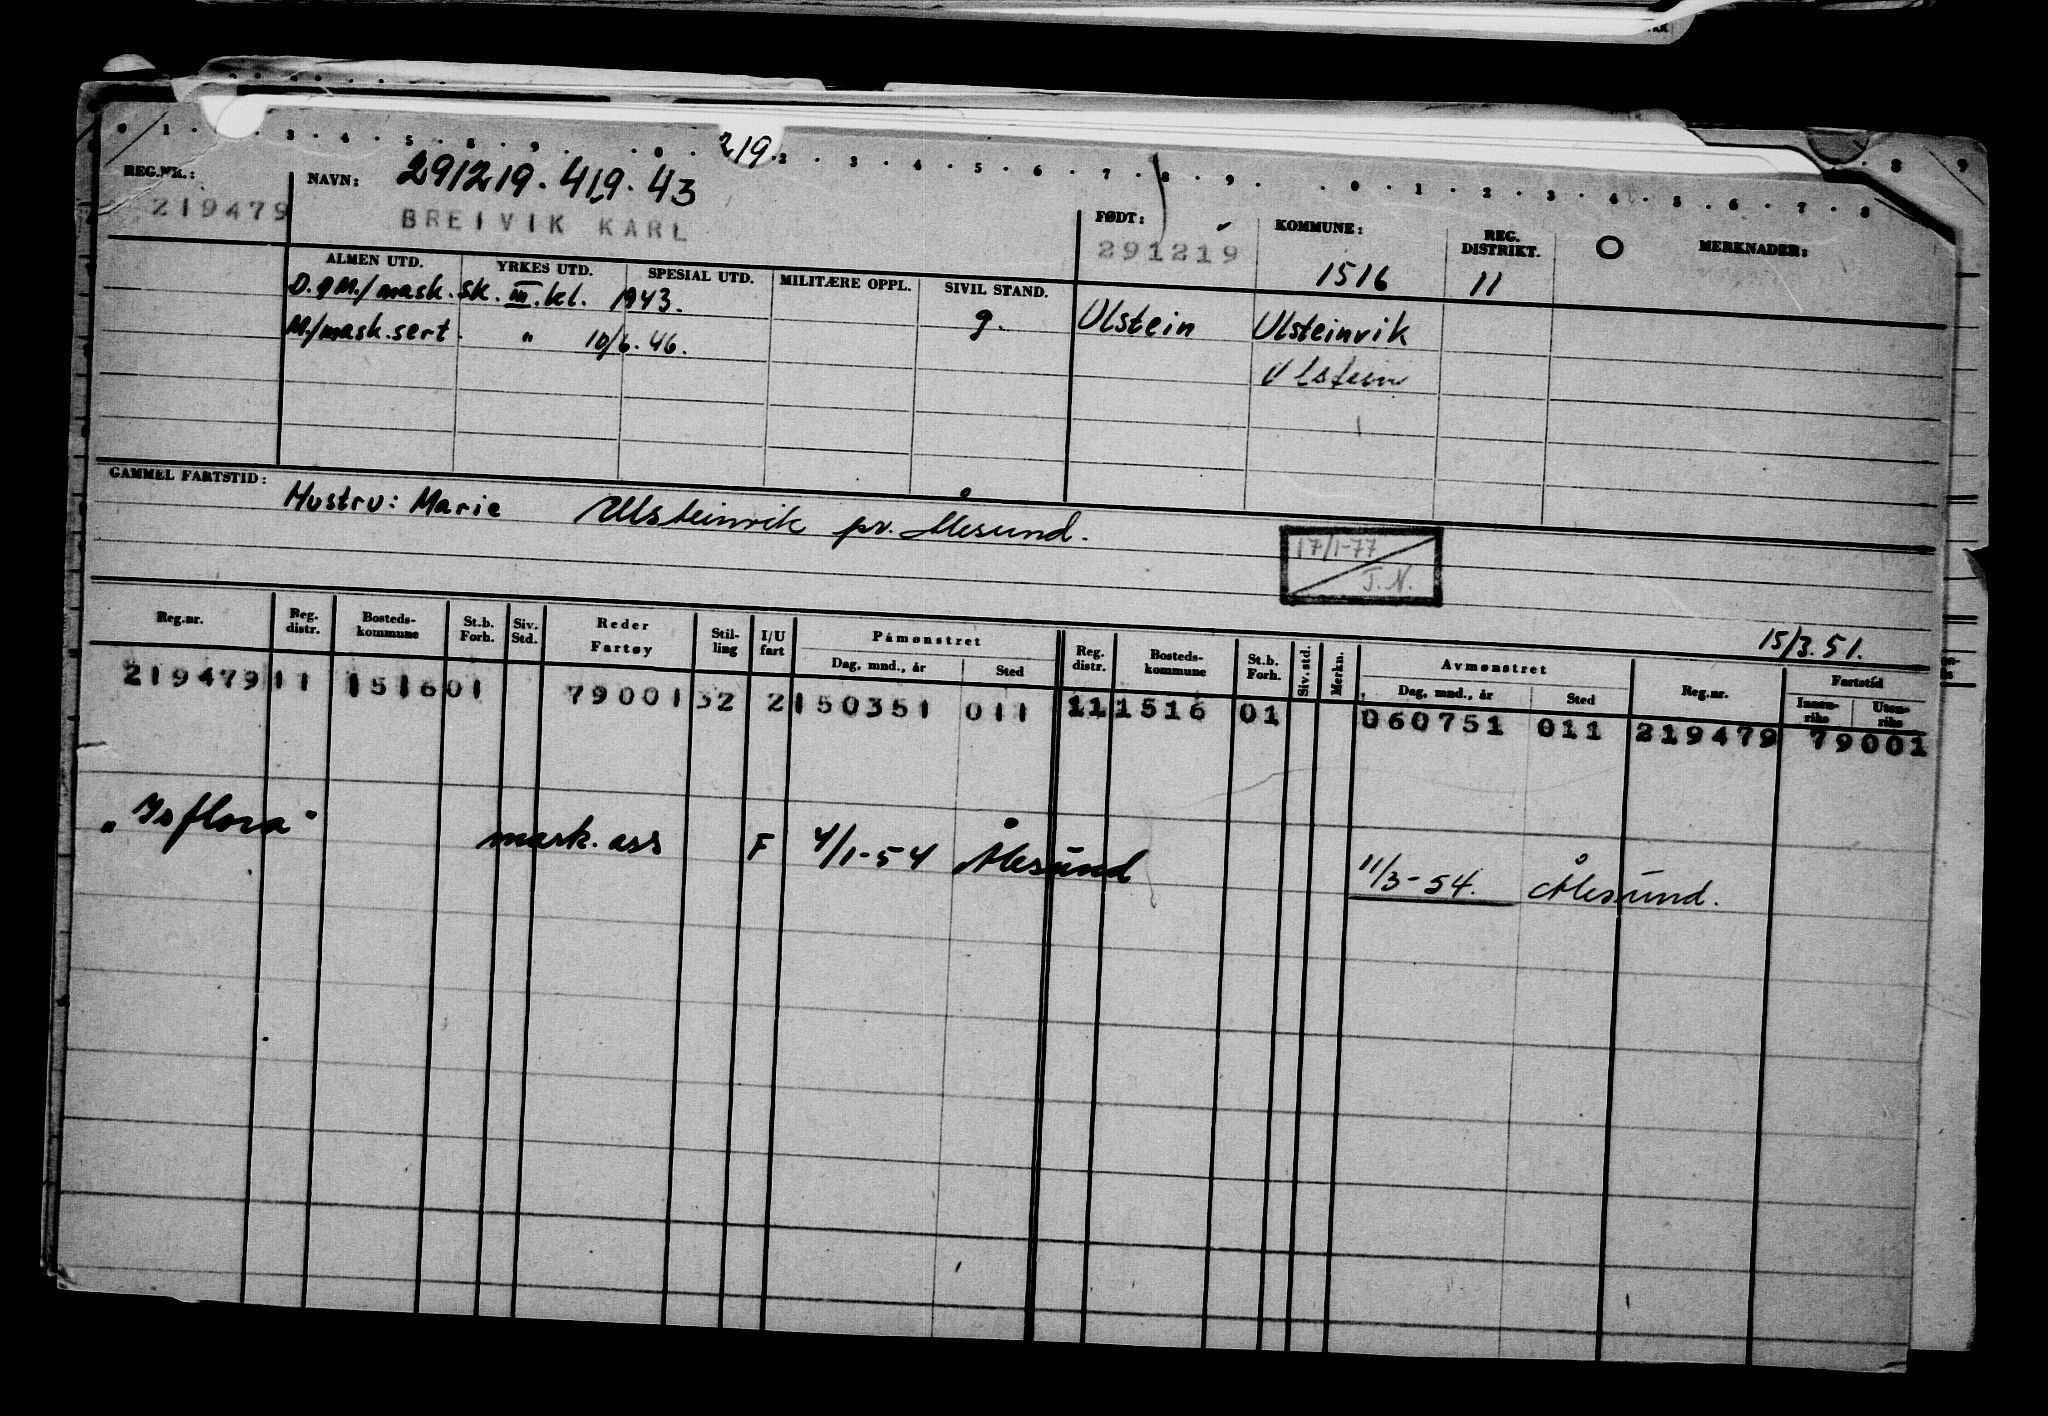 219.
REG.NR.: NAVN: 291219.419.43
219479 BREIVIK KARL FØDT: 291219 KOMMUNE: 1516 REG. DISTRIKT. 11 O MERKNADER:
ALMEN UTD. YRKES UTD. SPESIAL UTD. MILITÆRE OPPL. SIVIL STAND.
D. og M./mask. sk. III. kl. 1943. g. Ulstein Ulsteinvik
M./mask.sert. " 10/6.46. Ulstein
GAMMEL FARTSTID: Hustru: Marie Ulsteinvik pr. Ålesund.
17/1-77
T.N.
15/3.51.
Reg.nr. Reg. distr. Bosteds-kommune St.b. Forh. Siv. Std. Reder Fartøy Stil-ling I/U fart Påmønstret Dag, mnd., år Sted Reg. distr. Bosteds-kommune St.b. Forh. Siv. std. Merkn. Avmønstret Dag, mnd., år Sted Reg.nr. Fartstid Innen-riks Uten-riks
219479 11 1516 01 79001 32 2 150351 011 11 1516 01 060751 011 219479 79001
"Isflora" mask. ass F 4/1-54 Ålesund 11/3-54. Ålesund.